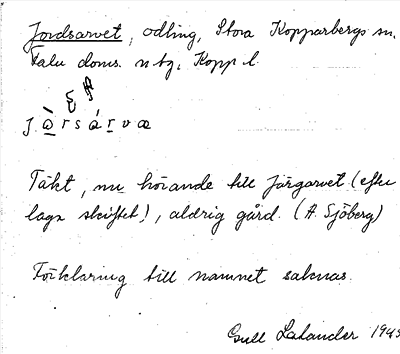 Jordsarvet, odling, Stora Kopparbergs sn.
Falu doms. ntg. Kopp l.
Täkt, nu hörande till Järgarvet (efter
laga skiftet!), aldrig gård. (A. Sjöberg)
Förklaring till namnet saknas.
Gull Lalander 1945